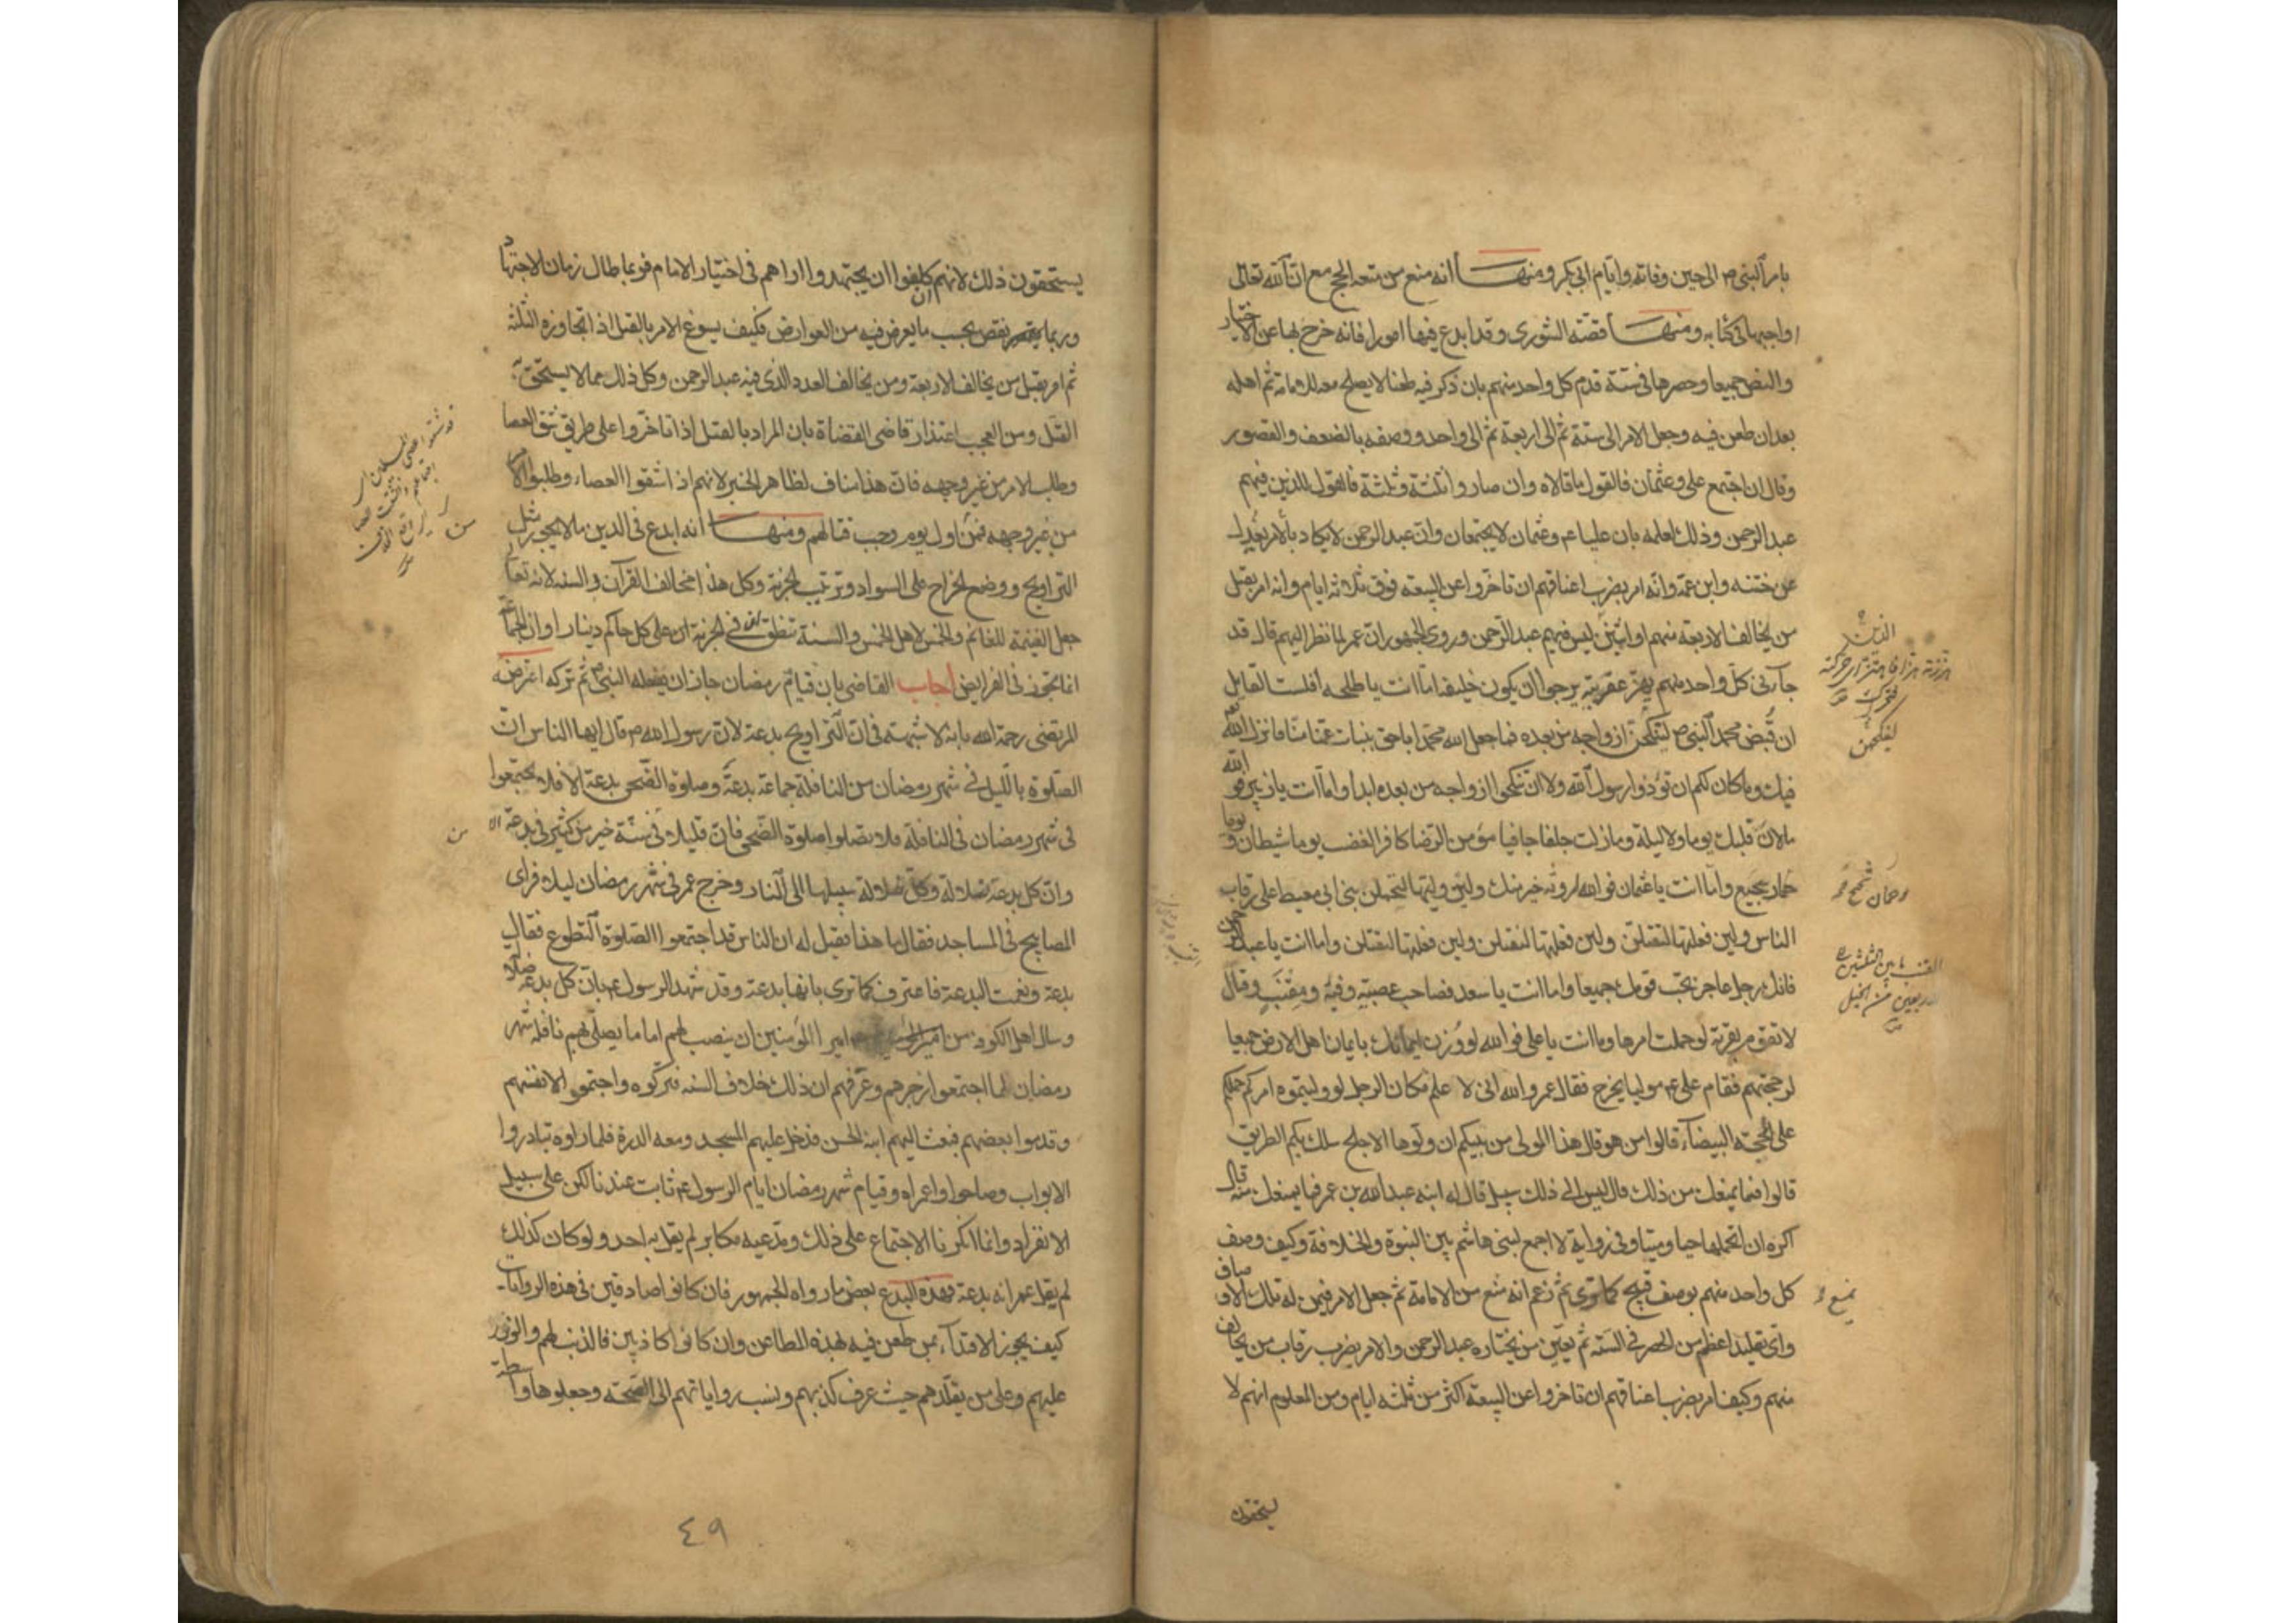 بامر النبي ص الى حين وفاته وايام ابي بكر ومنها انه منع من متعه الحج مع ان الله تعالى
اوجبها في كتابه ومنها قصّة الشورى وقد ابدع فيها امورا فانه خرج بها عن الاختيار
والنص جميعا وحصرها في ستة قدم كل واحد منهم بان ذكر فيه طعنا لا يصلح معه للامامة ثم اهله
بعد ان طعن فيه وجعل الامر الى ستة ثم الى اربعة ثم الى واحد ووصفه بالضعف والقصور
وقال ان اجتمع علي وعثمان فالقول ما قالاه وان صاروا ثلثة وثلثة فالقول للذين فيهم
عبد الرحمن وذلك لعلمه بان عليا عم وعثمان لا يجتمعان وان عبد الرحمن لا يكاد بالامر يعدل
عن ختنه وابن عمه وانه امر بضرب اعناقهم ان تاخروا عن البيعة فوق ثلاثه ايام وانه امر بقتل
من يخالف الاربعة منهم او اثنين ليس فيهم عبد الرحمن وروى الجمهور ان عمر لما نظر اليهم قال قد
جآءني كل واحد منهم يهز عقربته يرجو ان يكون خليفه اما انت يا طلحه افلست القايل
ان قُبض محمد النبي ص لتنكحن ازواجه من بعده فما جعل الله محمدا باحق ببنات عمنا منا فانزل الله
فيك وما كان لكم ان تؤذوا رسول الله ولا ان تنكحوا ازواجه من بعده ابدا واما انت يا زبير فو الله
ما لان قلبك يوما ولا ليلة وما زلت جلفا جافيا مؤمن الرضا كافر الغضب يوما شيطان ويوما
حمار شحيح واما انت يا عثمان فو الله لروثة خير منك ولين وليتها لتحملن بني ابي معيط على رقاب
الناس ولين فعلتها لتقتلن ولين فعلتها لتقتلن ولين فعلتها لتقتلن واما انت يا عبد الرحمن
فانك رجل عاجز تحب قومك جميعا واما انت يا سعد فصاحب عصبية وفتنة ومِقْنَبٍ وقتال
لا تقوم بقرية لو حملت امرها واما انت يا علي فو الله لو وُزن ايمانك بايمان اهل الارض جميعا
لرجحتهم فقام علي عم موليا يخرج فقال عمر والله اني لا علم مكان الرجل لو وليتموه امركم حملكم
على المحجة البيضآء قالوا من هو قال هذا المولي من بينكم ان ولوها الاجلح سلك بكم الطريق
قالوا فما يمنعك من ذلك قال ليس الى ذلك سبيل قال له ابنه عبد الله بن عمر فما يمنعك منه قال
اكره ان اتحملها حيا وميتا وفي رواية لا اجمع لبني هاشم بين النبوة والخلافة وكيف وصف
كل واحد منهم بوصف قبيح كما ترى ثم زعم انه منع من الامامة ثم جعل الامر فيمن له تلك الاوصاف
واي تقليد اعظم من الحصر في الستة ثم تعيين من يختاره عبد الرحمن والامر بضرب رقاب من يخالف
منهم وكيف امر بضرب اعناقهم ان تاخروا عن البيعة اكثر من ثلثه ايام ومن المعلوم انهم لا
يستحقون
لينكحن
المقنب ما بين الثلثين
الاربعين من الخيل
يستحقون ذلك لانهم كلفوا ان يجتهدوا اراهم في اختيار الامام فربما طال زمان الاجتهاد
وربما نقص بحسب ما يعرض فيه من العوارض فكيف يسوغ الامر بالقتل اذا تجاوزه الثلثة
ثم امر بقتل من يخالف الاربعة ومن يخالف العدد الذي فيه عبد الرحمن وكل ذلك مما لا يستحق به
القتل ومن العجب اعتذار قاضي القضاة بان المراد بالقتل اذا تاخروا على طريق شق العصا
وطلب الامر من غير وجهه فان هذا مناف لظاهر الخبر لانهم اذا شقوا العصاء وطلبوا الامر
من غير وجهه فمن اول يوم وجب قتالهم ومنها انه ابدع في الدين ما لا يجوز مثل
التراويح ووضع الخراج على السواد وترتيب الجزية وكل هذا مخالف القرآن والسنه لانه تعالى
جعل الغنيمة للغانم والخمس لاهل الخمس والسنة تنطق ان في الجزية ان على كل حاكم دينارا وان الجماعة
انما تجوز في الفرايض اجاب القاضي بان قيام رمضان جاز ان يفعله النبي ص ثم تركه اعترضه
المرتضى رحمة الله بانه لا شبهة في ان التراويح بدعة لان رسول الله ص قال ايها الناس ان
الصلوة بالليل في شهر رمضان من النافلة جماعة بدعة وصلوة الضحى بدعة الا فلا تجتمعوا
في شهر رمضان في النافلة ولا تصلوا صلوة الضحى فان قليلا في سنة خير من كثير في بدعة الا
وان كل بدعة ضلالة وكل ضلالة سبيلها الى النار وخرج عمر في شهر رمضان ليلا فراى
المصابيح في المساجد فقال ما هذا فقيل له ان الناس قد اجتمعوا الصلوة التطوع فقال
بدعة ونعمت البدعة فاعترف كما ترى بانها بدعة وقد شهد الرسول عم بان كل بدعة ضلالة
وسال اهل الكوفة من امير المؤمنين ان ينصب لهم اماما يصلي بهم نافلة شهر
رمضان لما اجتمعوا زجرهم وعرفهم ان ذلك خلاف السنه فتركوه واجتمعوا لانفسهم
وقدموا بعضهم فبعث اليهم ابنه الحسن فدخل عليهم المسجد ومعه الدرة فلما راوه تبادروا
الابواب وصاحوا واعمراه وقيام شهر رمضان ايام الرسول عم ثابت عندنا لكن على سبيل
الانفراد وانما انكرنا الاجتماع على ذلك ومدعيه مكابر لم يقل به احد ولو كان كذلك
لم يقل عمر انه بدعة فهذه البدع بعض ما رواه الجمهور فان كانوا صادقين في هذه الروايات
كيف يجوز الاقتدآء بمن طعن فيه بهذه المطاعن وان كانوا كاذبين فالذنب لهم والوزر
عليهم وعلى من يقلدهم حيث عرف كذبهم ونسب رواياتهم الى الصحته وجعلوها واسطة
٤٩